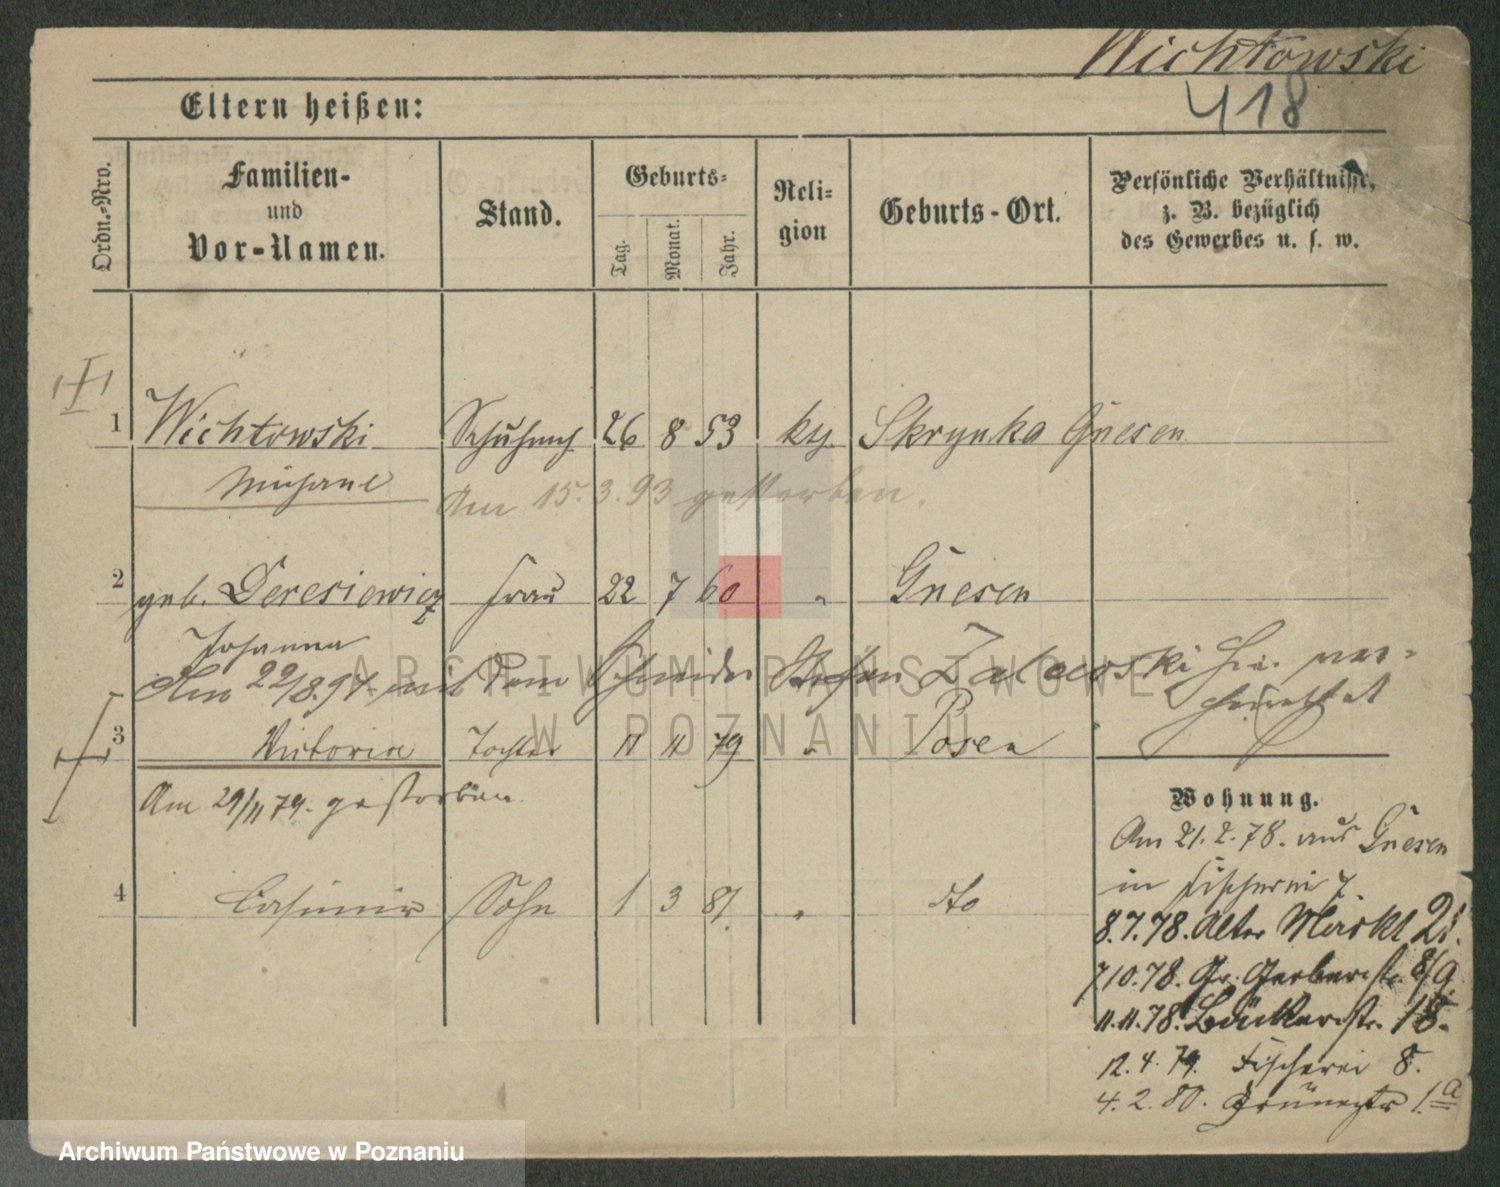 Wichtowski
418
Eltern heißen:
Ordn.-Nro.
Familien-
und
Vor-Namen.
Stand.
Geburts-
Tag.
Monat.
Jahr.
Reli-
gion
Geburts-Ort.
Persönliche Verhältnisse,
z. B. bezüglich
des Gewerbes u. s. w.
1 Wichtowski Schuhmch 26 8 53 kth Skrynka Gnesen
Am 15.3.93 gestorben.
2 geb. Deresiewicz Frau 22 7 60 " Gnesen
Johanna
Am 22/8.94 mit dem Schneider Stefan Zalewski hier ver-
heirathet
3 Victoria Tochter 11 11 79 " Posen
Am 29/11 79. gestorben.
4 Casimir Sohn 1 3 81. " dto
Wohnung.
Am 21.2.78. aus Gnesen
in Fischerei 7.
8.7.78. Alter Markt
7 10.78. Gr. Gerberstr. 8/9
11.11.78. Bäckerstr. 18.
12.4.79. Fischerei 8.
4.2.80. 1.a
ARCHIWUM PAŃSTWOWE
W POZNANIU
Archiwum Państwowe w Poznaniu